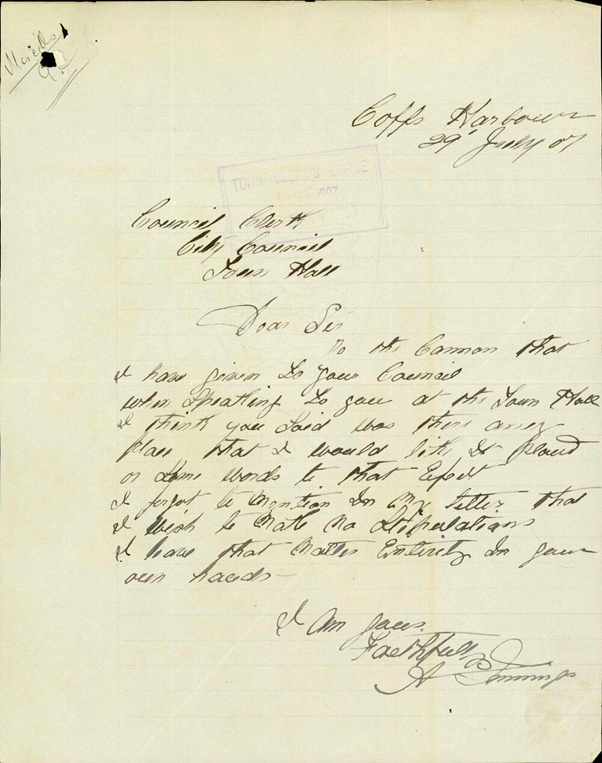 Coffs Harbour
29 July 07
TOWN CLERK'S OFFICE
Council Clerk
City Council
Town Hall
Dear Sir
To the Cannon that
I have given to your Council
when speaking to you at the Town Hall
I think you said was there any
place that I would like it placed
or some words to that Efect
I forgot to mention in my letter that
I wish to make no stipulations
I leave that matter Entirely in your
own hands
I am yours
Faithfully
A Jennings